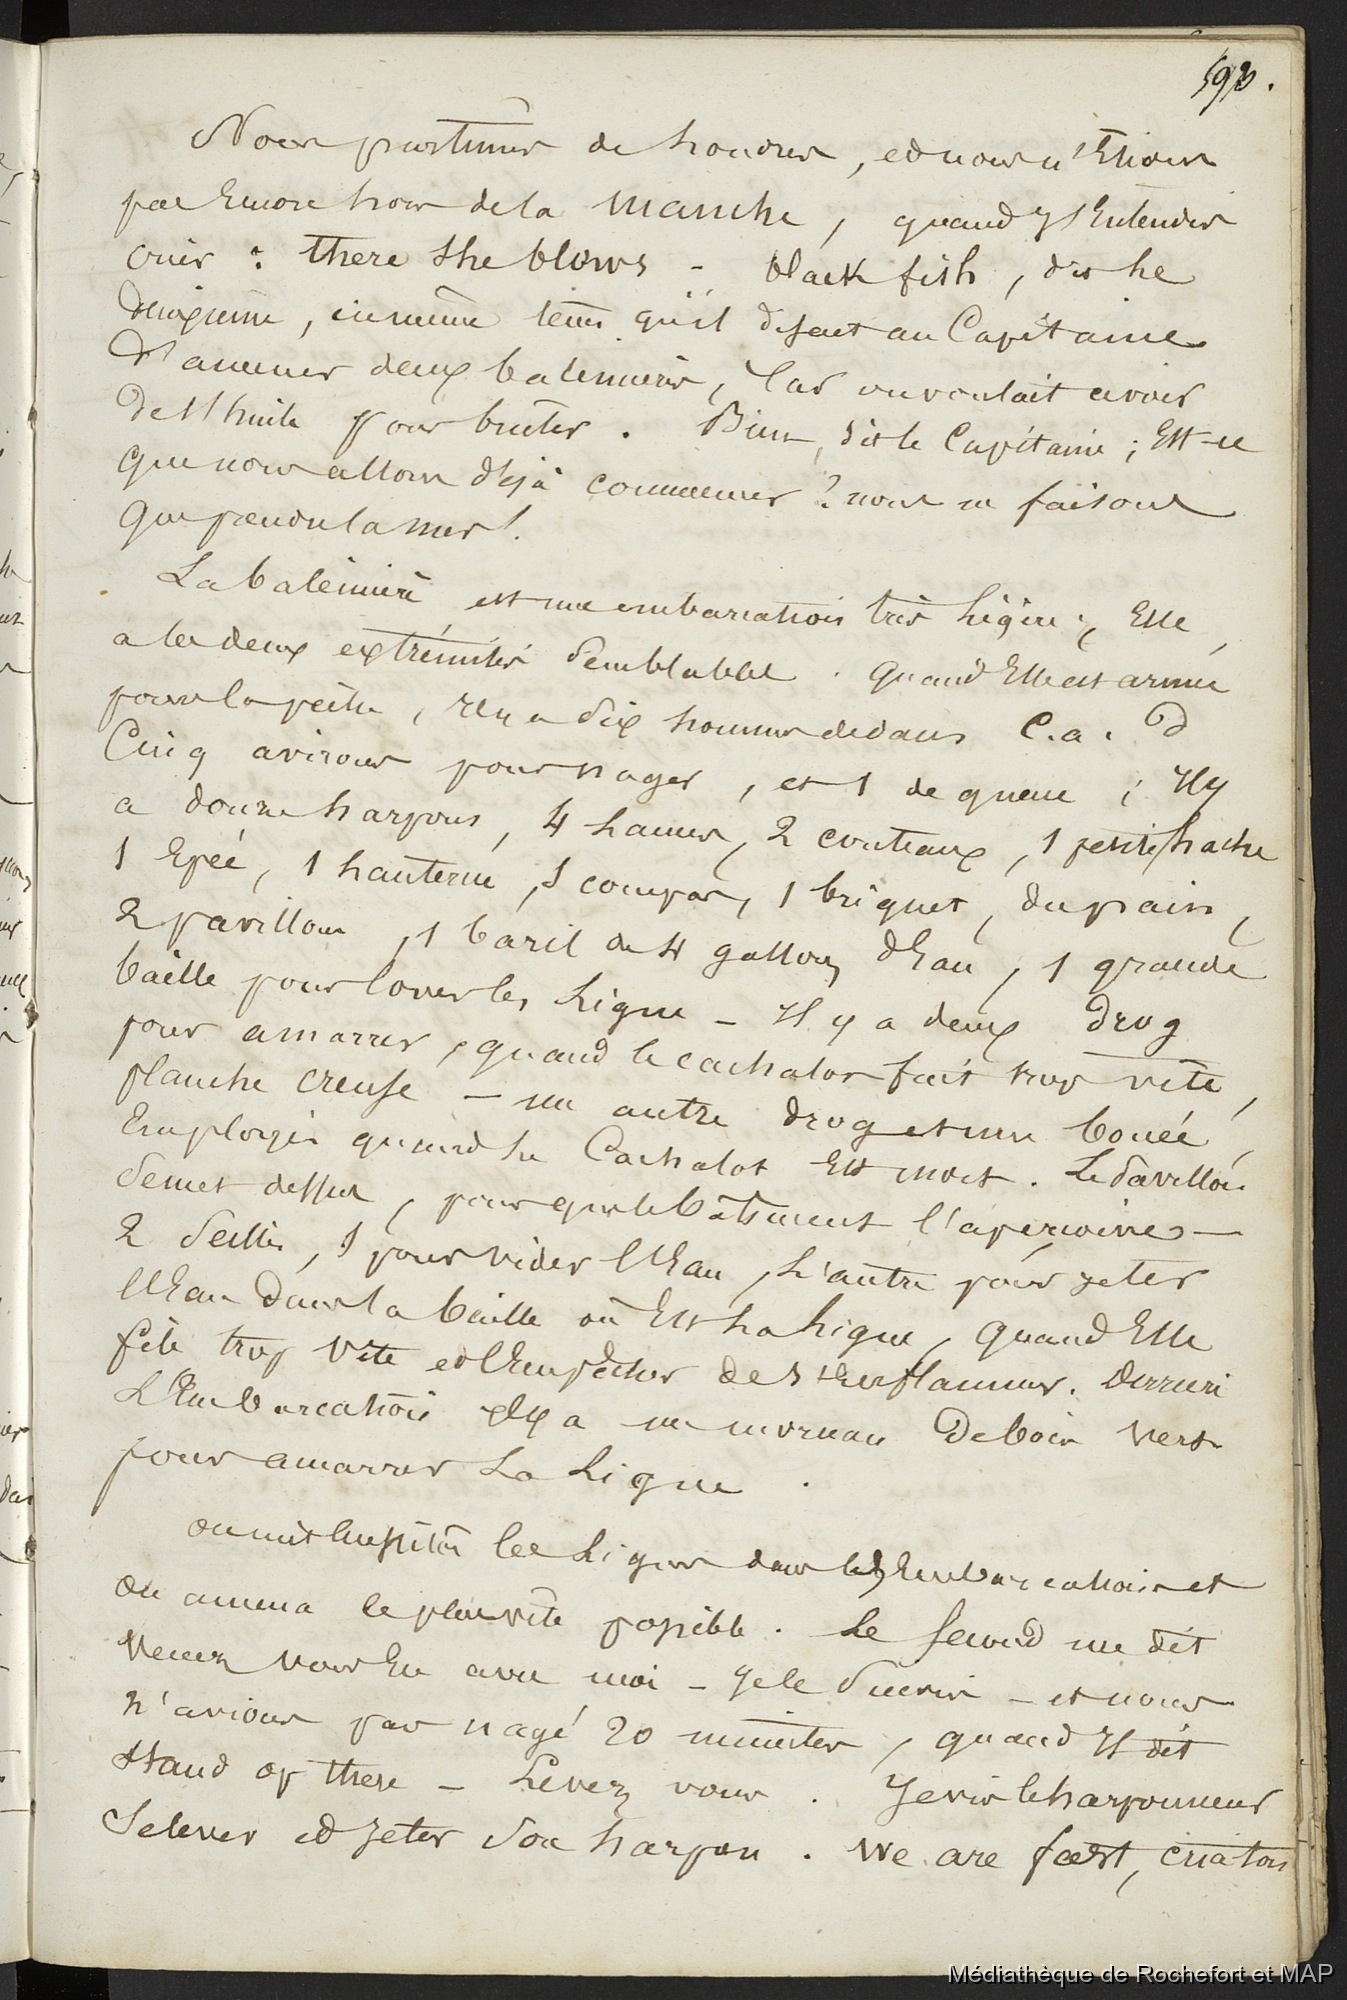 593.
Nous partimes de Londres, et nous n'Etions
pas Encore hors de la Manche, quand j'Entendis
crier : there she blows - black fish, dit le
deuxieme, en même tems qu'il disait au Capitaine
d'amener deux baleinieres, Car on voulait avoir
de l'huile pour bruler. Bien, dit le Capitaine ; Est-ce
que nous allons déjà commencer ? nous ne faisons
que prendre la mer !
La baleinière est une embarcation très légère ; Elle
a les deux extrémités semblables. Quand Elle est armée
pour la pêche, il y a six hommes dedans C.a.d
Cinq avirons pour nager, et 1 de queue ; Il y
a douze harpons, 4 lances, 2 couteaux, 1 petite hache
1 Epée, 1 lanterne, 1 compas, 1 briquet, du pain,
2 pavillons, 1 baril de 4 gallons d'Eau, 1 grande
baille pour lover les lignes - Il y a deux drog
pour amarrer, quand le cachalot fait trop vite,
planche creuse - un autre drog est une bouée,
Employée quand le Cachalot Est mort. Le pavillon
se met dessus, pour que le bâtiment l'aperçoive -
2 seilles, 1 pour vider l'Eau, l'autre pour jeter
l'Eau dans la baille où Est la ligne, quand Elle
file trop vite et l'Empêcher de s'Enflammer. Derriere
L'Embarcation il y a un morceau de bois vert
pour amarrer la ligne.
on mit les lignes dans les Embarcations et
on amena le plus vite possible. Le second me dit
Venez vous En avec moi - Je le suivis - et nous
n'avions pas nagé 20 minutes, quand il dit
Stand op there - Levez vous. Je vis le harponneur
Se lever et jeter son harpon. We are fast, cria-t-on
Médiathèque de Rochefort et MAP